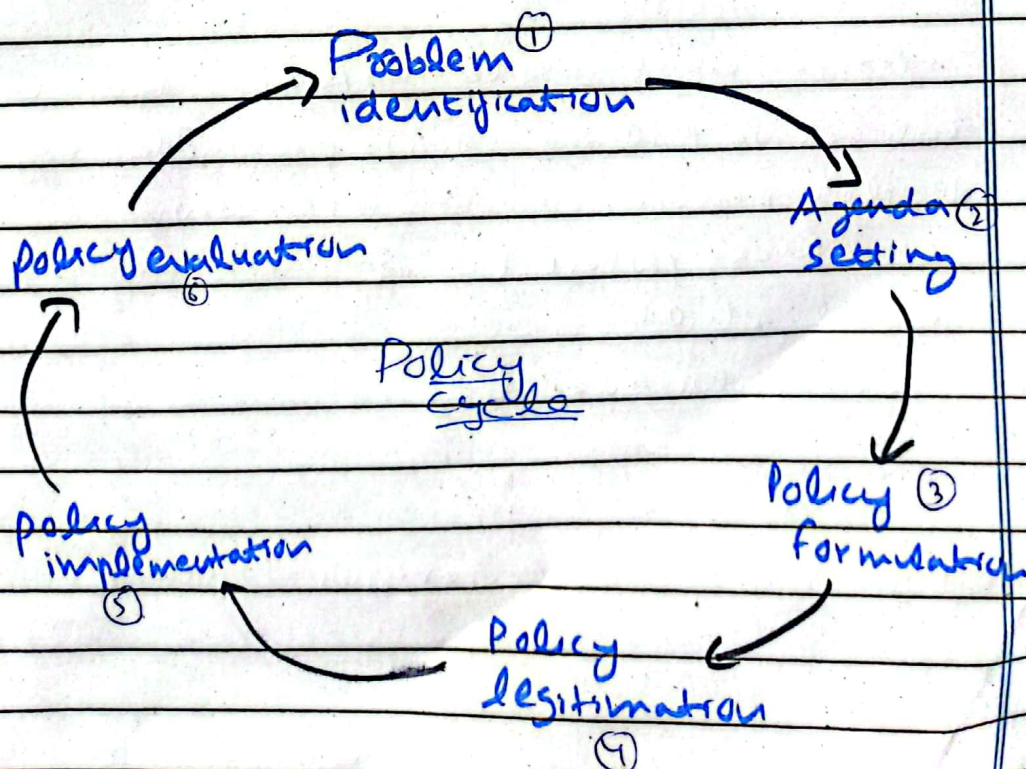 Problem ①
identification
Agenda ②
setting
Policy ③
formulation
Policy
legitimation
④
policy
implementation
⑤
policy evaluation
⑥
Policy
cycle